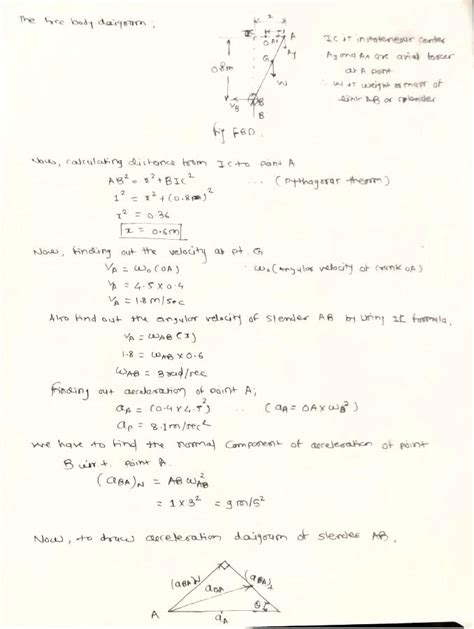 The free body daigoram;
x
A
IC or instataneous center
O
Ay
Ay and Ax are axial forces
G
at A point
0.8m
W
∴ W or weight or mass of
VB
B
link AB or splender
B
fig FBD.
Now, calculating distance from IC to point A
AB² = x² + BIC² ... (Pythagoras theorem)
1² = x² + (0.8m)²
x² = 0.36
x = 0.6m
Now, finding out the velocity at pt. G
VA = ω₀ (OA) ω₀ (angular velocity of crank OA)
VA = 4.5 x 0.4
VA = 1.8 m/sec
Also find out the angular velocity of slender AB by using IC formula,
VA = ωAB (x)
1.8 = ωAB x 0.6
ωAB = 3 rad/sec
finding out acceleration of point A;
aA = (0.4 x 4.5²) .. (aA = OA x ω₀²)
aA = 8.1 m/sec²
We have to find the normal component of acceleration of point
B w.r.t. point A.
(aBA)N = AB ω²AB
= 1 x 3² = 9 m/s²
Now, to draw acceleration daigoram of slender AB,
(aBA)N
aBA
(aBA)t
A
aA
θ